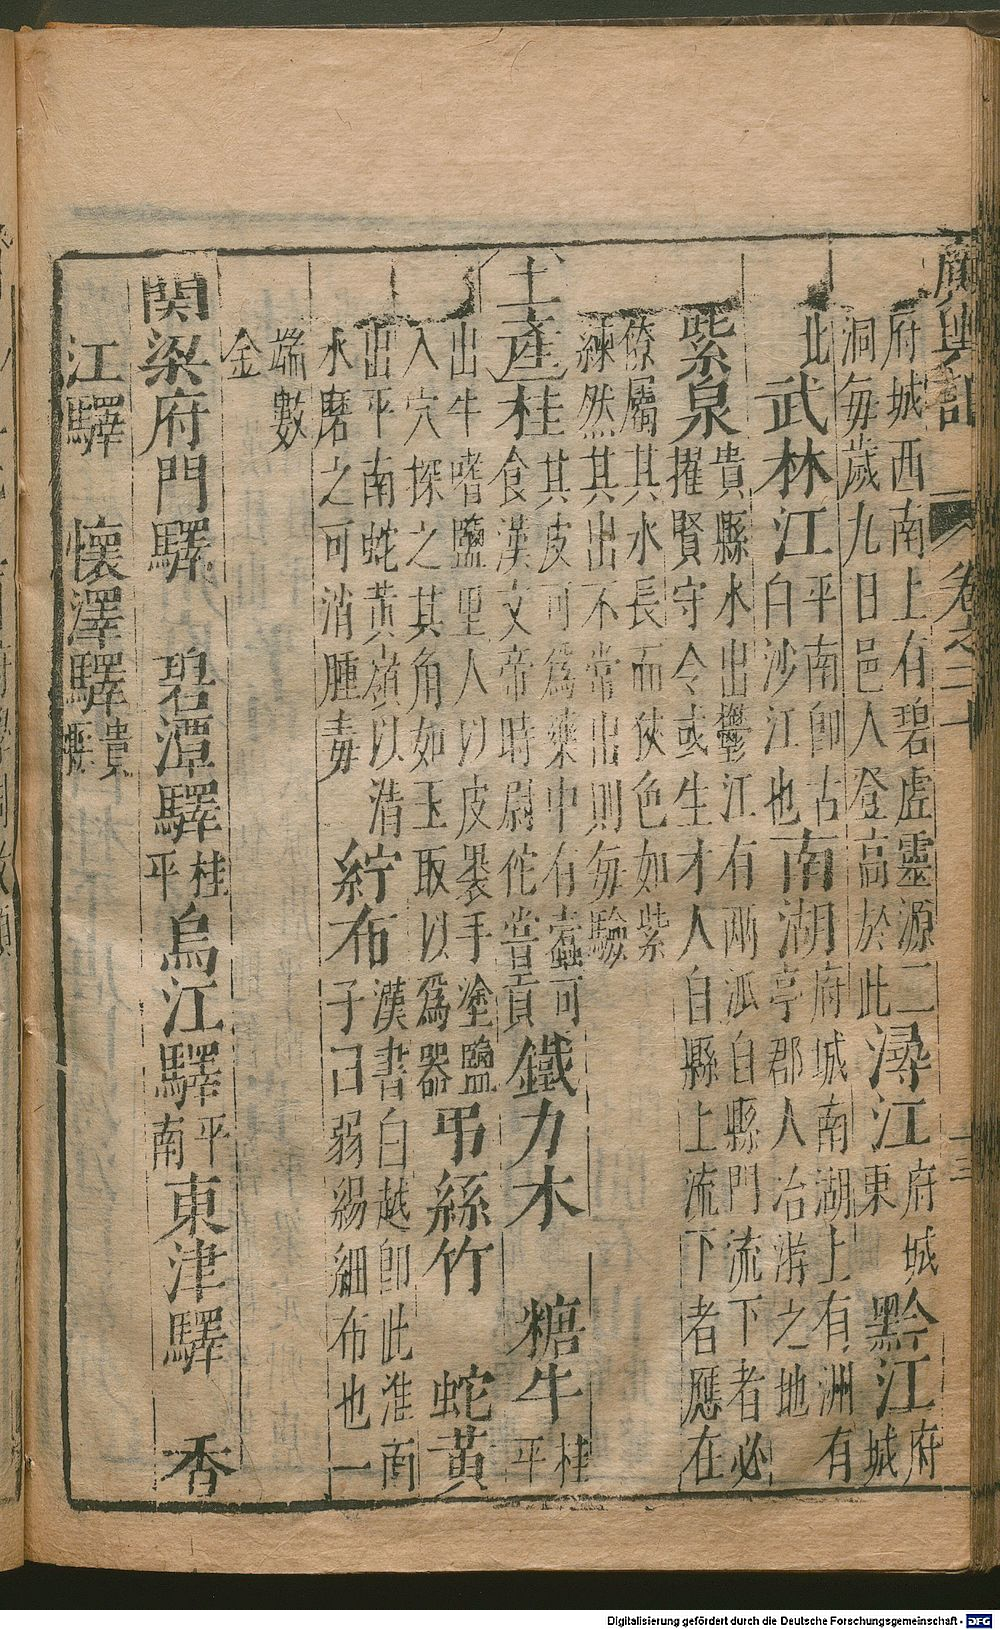 廣輿記 卷之二十 十三
府城西南上有碧虚靈源二
洞每歲九日邑人登高於此
潯江
府城
東
黔江
府城
北
武林江
平南即古
白沙江也
南湖
府城南湖上有洲有
亭郡人冶游之地
紫泉
貴縣水出鬱江有兩派自縣門流下者必
擢賢守令或生才人自縣上流下者應在
僚屬其水長而狹色如紫
練然其出不常出則每驗
土產
桂
其皮可為藥中有蠹可
食漢文帝時尉佗嘗貢
鐵力木
糖牛
桂
平
出牛嗜鹽里人以皮裹手塗鹽
入穴探之其角如玉取以為器
弔絲竹
蛇黃
出平南蛇黃嶺以淯
水磨之可消腫毒
紵布
漢書白越即此淮南
子曰弱緆細布也一
端數
金
関梁
府門驛
碧潭驛
桂
平
烏江驛
平
南
東津驛
香
江驛
懷澤驛
貴
縣
Digitalisierung gefördert durch die Deutsche Forschungsgemeinschaft - DFG